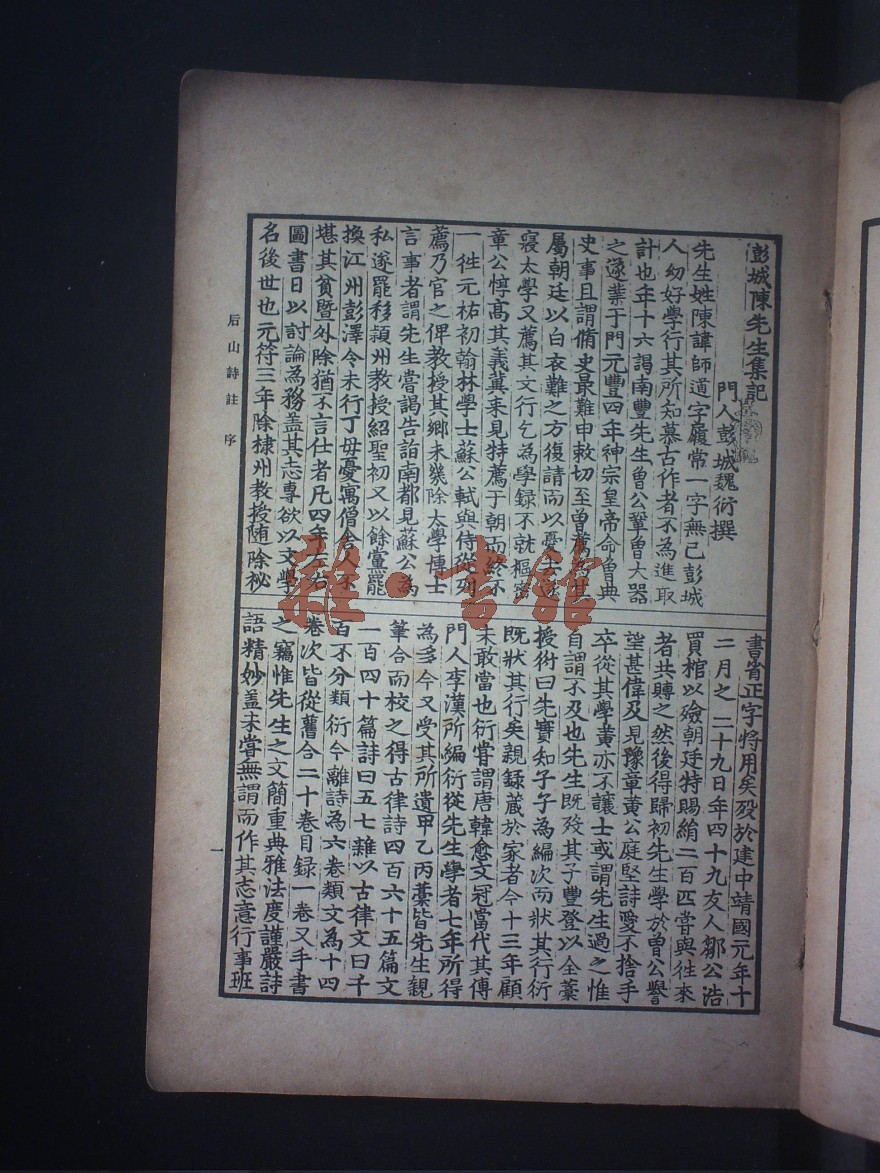 彭城陳先生集記
門人彭城魏衍撰
先生姓陳諱師道字履常一字無己彭城
人幼好學行其所知慕古作者不為進取
計也年十六謁南豐先生曾公鞏曾大器
之遂業于門元豐四年神宗皇帝命曾典
史事且謂脩史最難申敕切至曾薦為其
屬朝廷以白衣難之方復請而以憂去遂
寢太學又薦其文行乞為學録不就樞密
章公惇髙其義冀来見特薦于朝而終不
一徃元祐初翰林學士蘇公軾與侍從列
薦乃官之俾教授其鄉未幾除太學博士
言事者謂先生嘗謁告詣南都見蘇公為
私遂罷移潁州教授紹聖初又以餘黨罷
換江州彭澤令未行丁母憂寓僧舍人不
堪其貧暨外除猶不言仕者凡四年左右
圖書日以討論為務盖其志專欲以文學
名後世也元符三年除棣州教授随除秘
書省正字將用矣歿於建中靖國元年十
二月之二十九日年四十九友人鄒公浩
買棺以殮朝廷特賜絹二百匹嘗與徃來
者共賻之然後得歸初先生學於曾公譽
望甚偉及見豫章黄公庭堅詩愛不捨手
卒從其學黄亦不讓士或謂先生過之惟
自謂不及也先生既歿其子豐登以全藁
授衍曰先實知子子為編次而狀其行衍
既狀其行矣親録蔵於家者今十三年顧
未敢當也衍嘗謂唐韓愈文冠當代其傳
門人李漢所編衍從先生學者七年所得
為多今又受其所遺甲乙丙藁皆先生親
筆合而校之得古律詩四百六十五篇文
一百四十篇詩曰五七雜以古律文曰千
百不分類衍今離詩為六卷類文為十四
卷次皆從舊合二十卷目録一卷又手書
之竊惟先生之文簡重典雅法度謹嚴詩
語精妙盖未嘗無謂而作其志意行事班
后山詩註 序
一
雜·書館